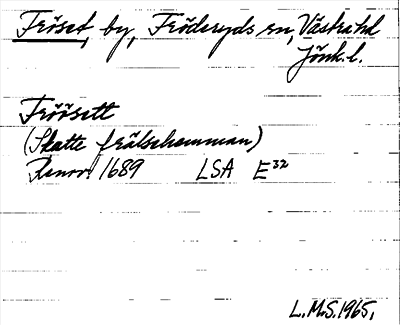 Fröset, by, Fröderyds sn, Västra hd
Jönk. l.
Fröösett
(Skatte frälsehemman)
Renov. 1689 LSA E³²
L.M.S. 1965.